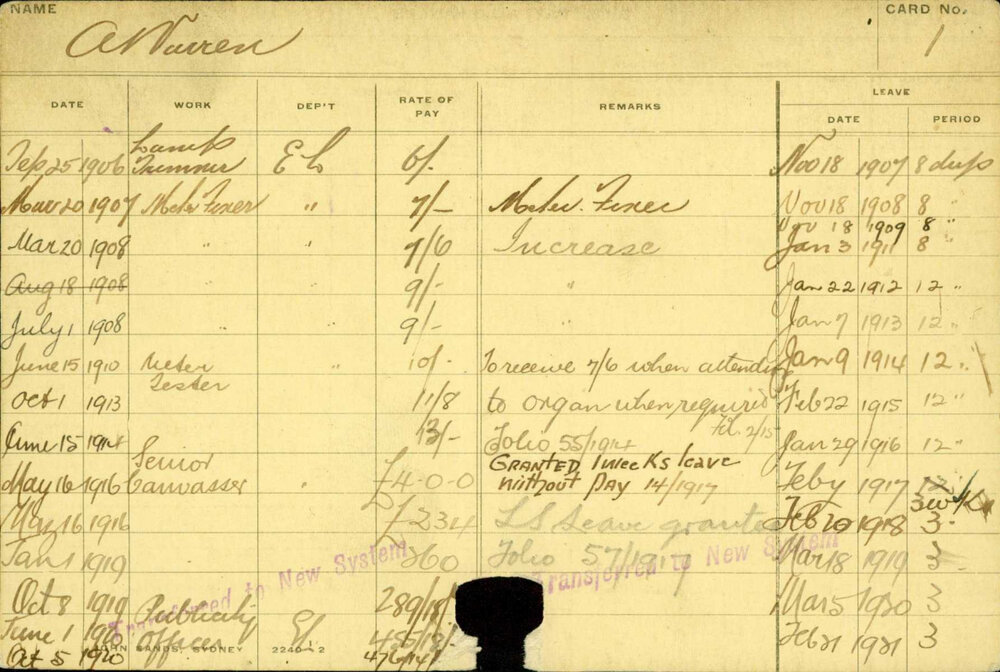 NAME
CARD No.
A Warren
1
DATE WORK DEP'T RATE OF PAY REMARKS LEAVE
DATE PERIOD
Sep 25 1906 Lamp Trimmer E L 6/- Nov 18 1907 8 days
Mar 20 1907 Meter Fixer " 7/- Meter Fixer Nov 18 1908 8 "
Nov 18 1909 8 "
Mar 20 1908 " " 7/6 Increase Jan 3 1911 8
Aug 18 1908 " 9/- " Jan 22 1912 12 "
July 1 1908 " " 9/- Jan 7 1913 12 "
June 15 1910 Meter Tester " 10/- To receive 7/6 when attending Jan 9 1914 12 "
Oct 1 1913 11/8 to organ when required Feb 22 1915 12 "
Fol. 2/15
June 15 1914 13/- Folio 55/1914 Jan 29 1916 12 "
May 16 1916 Senior Canvasser " £4-0-0 GRANTED 1 weeks leave without Pay 14/1917 Feby 1917 12
3
May 16 1916 £234 LS Leave granted Feb 1918 3
Jan 1 1919 260 Folio 57/1917 Mar 18 1919 3
Transferred to New System Transferred to New System
Oct 8 1919 Publicity Officer 289/18/- Mar 5 1920 3
June 1 1920 El Feb 21 1921 3
Oct 5 1920 476/14/-
JOHN SANDS, SYDNEY 2240-2